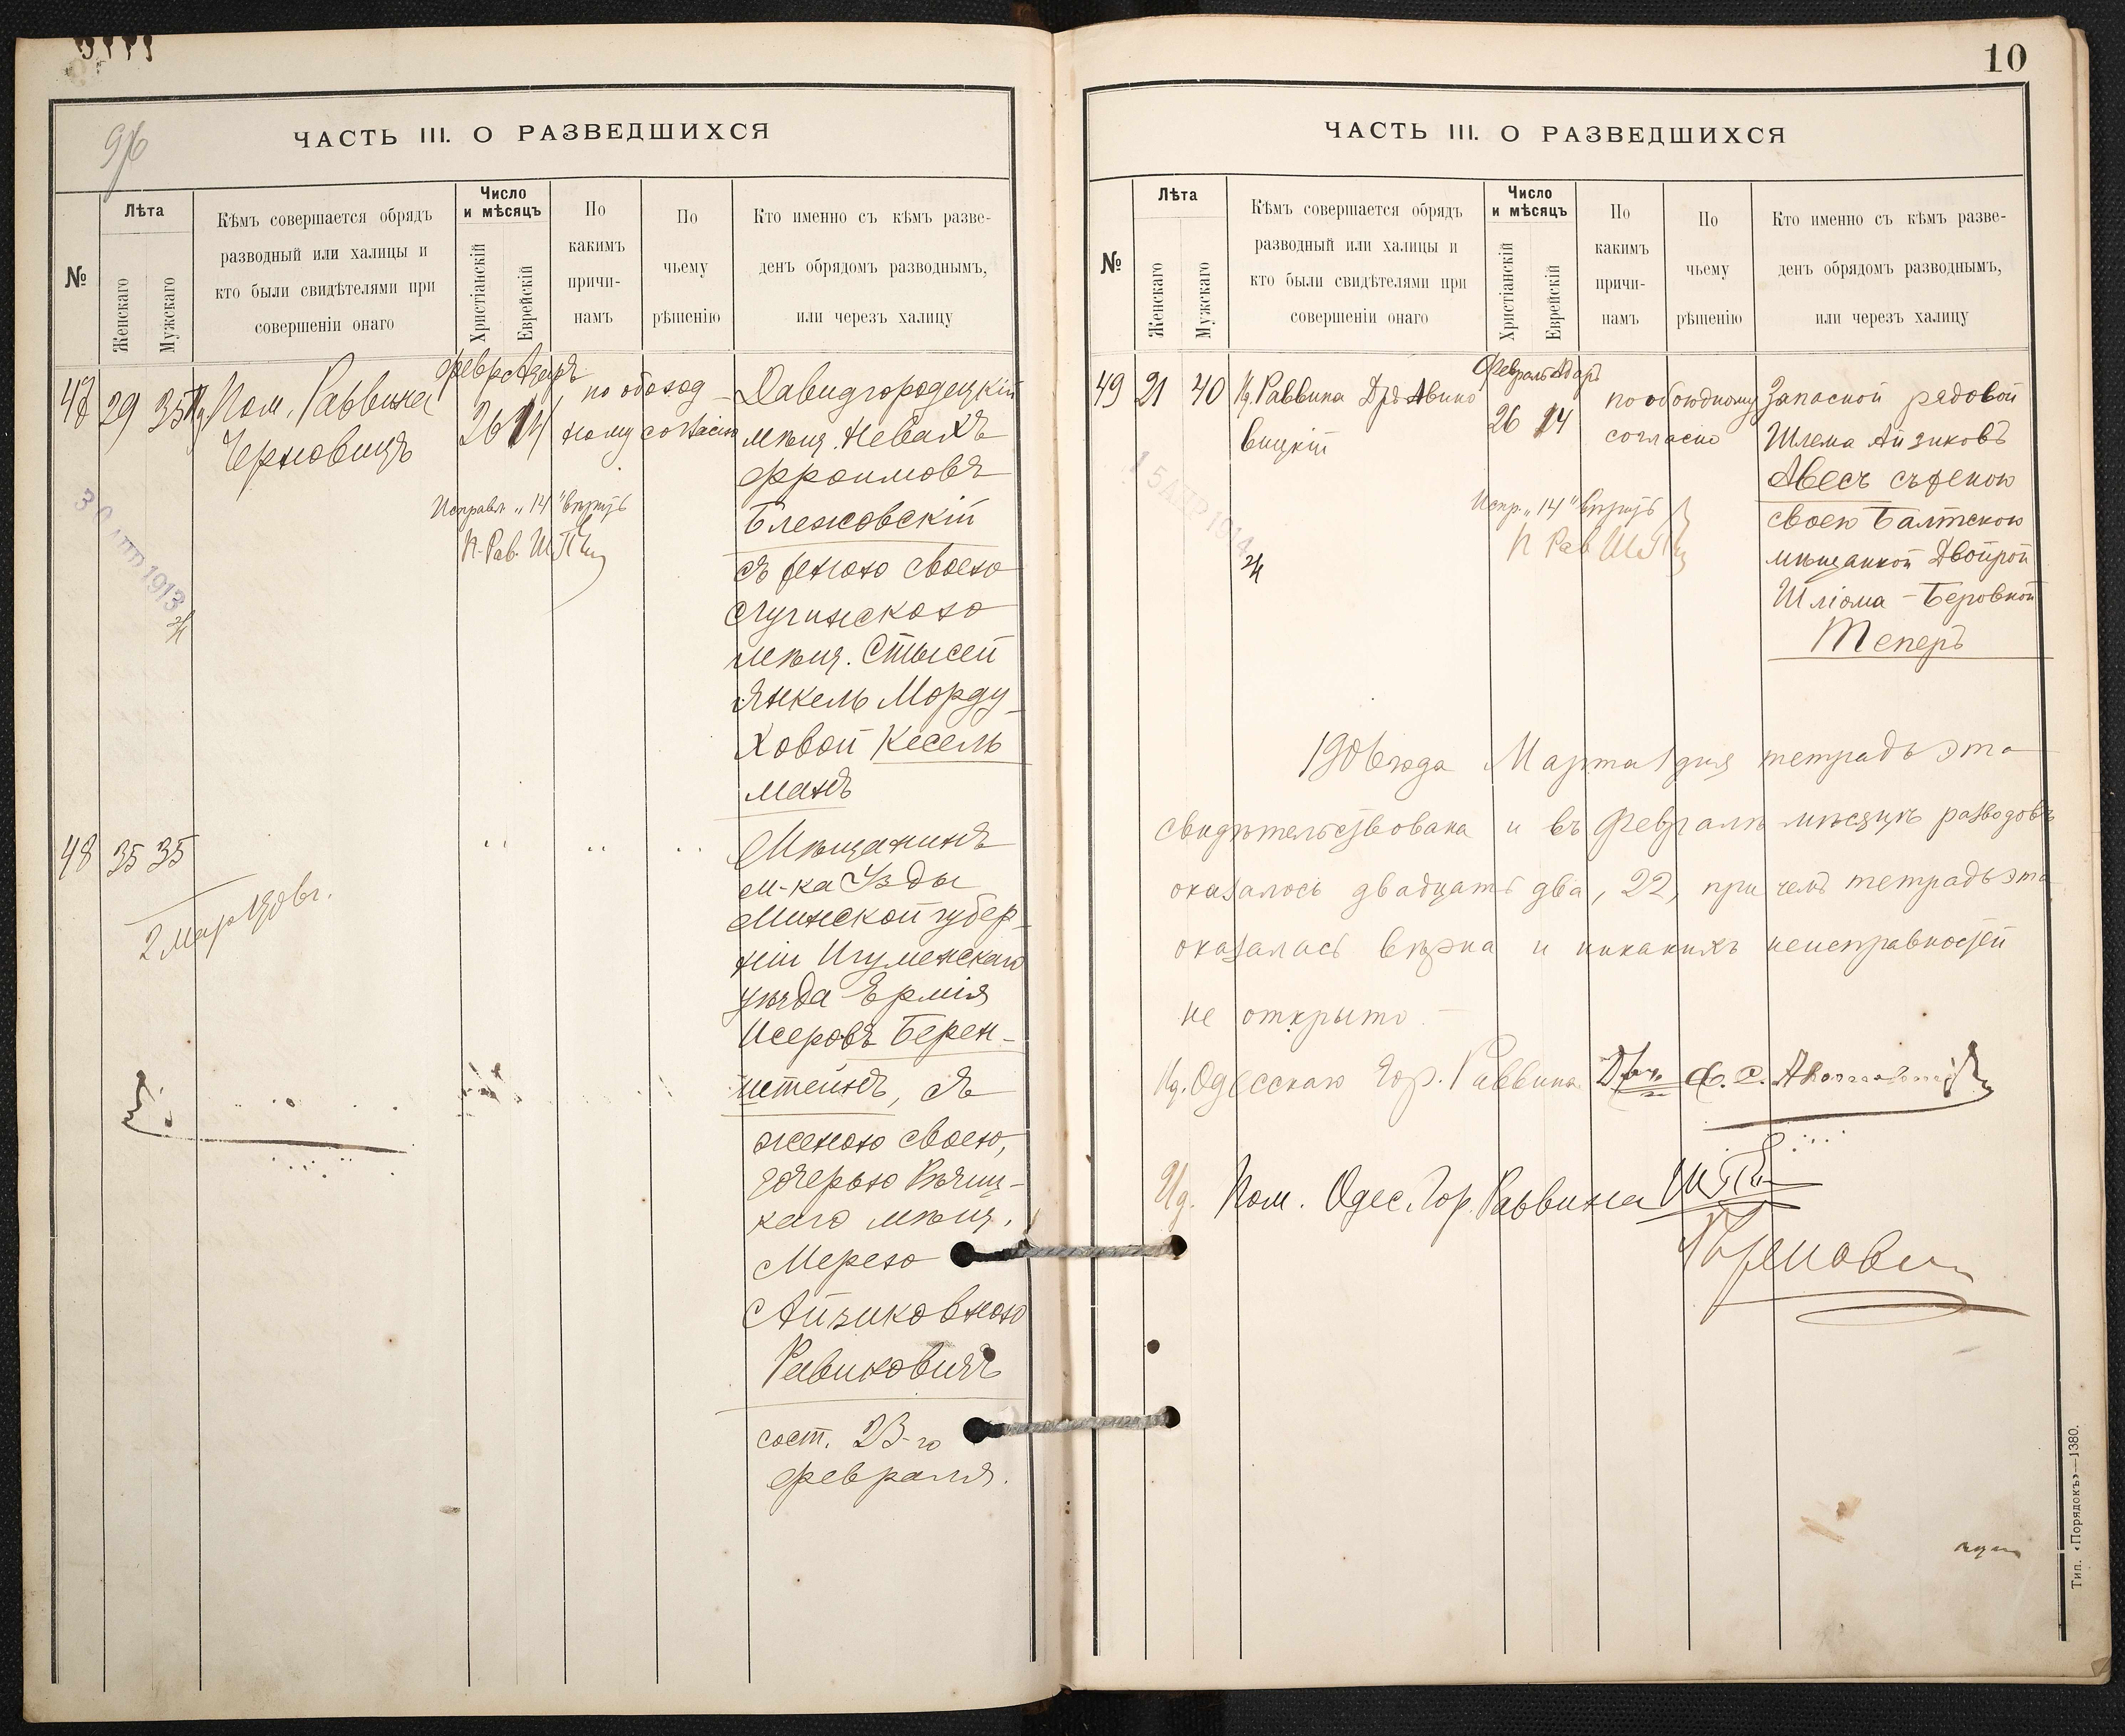 ЧАСТЬ III. О РАЗВЕДШИХСЯ
№
Лѣта
Женскаго
Мужскаго
Кѣмъ совершается обрядъ
разводный или халицы и
кто были свидѣтелями при
совершеніи онаго
Число
и мѣсяцъ
Христіанскій
Еврейскій
По
какимъ
причи-
намъ
По
чьему
рѣшенію
Кто именно съ кѣмъ разве-
денъ обрядомъ разводнымъ,
или черезъ халицу
47 29 35 Пом. Раввина
26 14
по обоюд-
ному согласію
Исправл. „14" вѣрить
30 АПР 1913
Давидгородецкій
мѣщ. Невахъ
Фроимовъ
Блежовскій
съ женою своею
мѣщ. Стысей
Янкель Морду-
ховой Кесель
манъ
48 35 35
2 Мар 1906 г.
Мѣщанинъ
м-ка Узды
Минской губер-
ніи Игуменскаго
уѣзда Ермія
Исеровъ Берен-
штейнъ, съ
женою своею,
дочерью
каго мѣщ.
Мерею
Айзиковною
Равиковичъ
сост. 23-го
февраля.
10
ЧАСТЬ III. О РАЗВЕДШИХСЯ
№
Лѣта
Женскаго
Мужскаго
Кѣмъ совершается обрядъ
разводный или халицы и
кто были свидѣтелями при
совершеніи онаго
Число
и мѣсяцъ
Христіанскій
Еврейскій
По
какимъ
причи-
намъ
По
чьему
рѣшенію
Кто именно съ кѣмъ разве-
денъ обрядомъ разводнымъ,
или черезъ халицу
Февраль Адаръ
49 21 40 Ид. Раввина Дръ Авино
вицкій
26 14
по обоюдному
согласію
Испр. „14" вѣрить
15 АПР 1914
Запасной рядовой
Шлема Айзиковъ
Авесъ съ женою
своею Балтскою
мѣщанкой Двойрой
Шліома-Беровной
Теперъ
1906 года Марта 1 дня тетрадь эта
свидѣтельствована и въ Февралѣ мѣсяцѣ разводовъ
оказалось двадцать два, 22, при чемъ тетрадь эта
оказалась вѣрна и никакихъ неисправностей
не открыто. —
Ид. Одесскаго Гор. Раввина
Ид. Пом. Одес. Гор. Раввина
Тип. «Порядокъ»—1380.